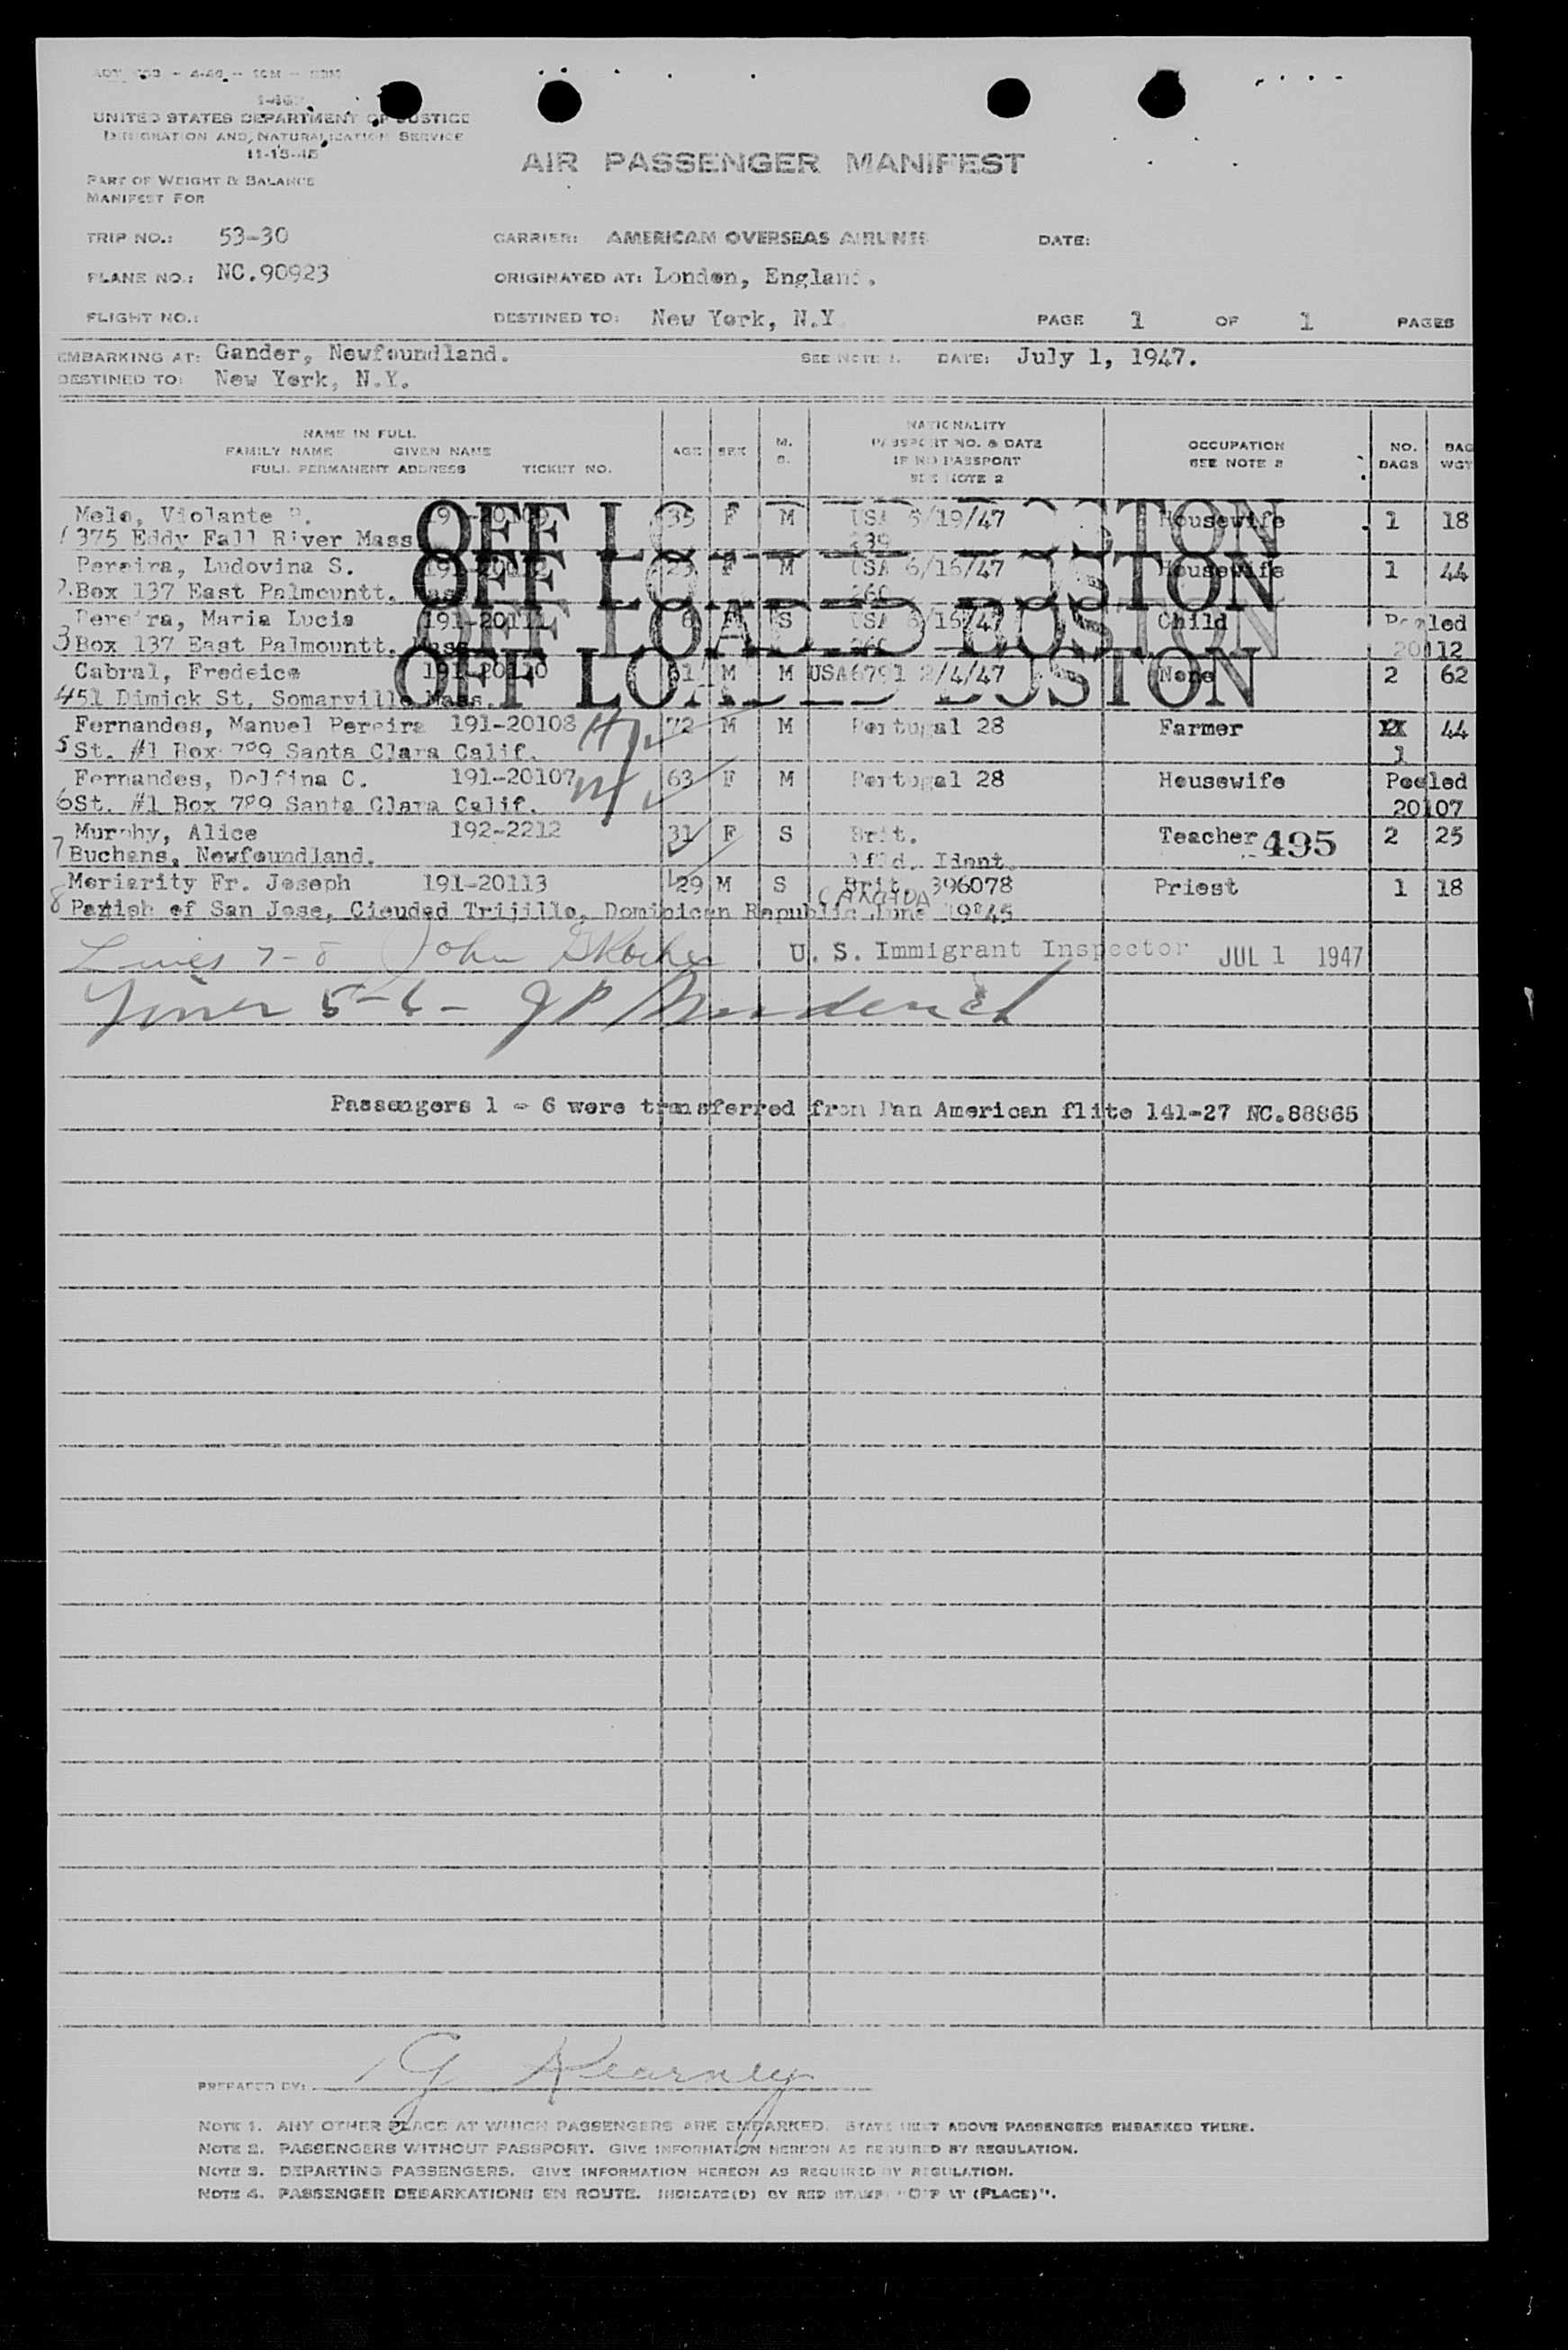 UNITED STATES DEPARTMENT OF JUSTICE
IMMIGRATION AND NATURALIZATION SERVICE
11-15-45
AIR PASSENGER MANIFEST
PART OF WEIGHT & BALANCE
MANIFEST FOR
TRIP NO.: 53-30 CARRIER: AMERICAN OVERSEAS AIRLINES DATE:
PLANE NO.: NC.90923 ORIGINATED AT: London, England.
FLIGHT NO.: DESTINED TO: New York, N.Y. PAGE 1 OF 1 PAGES
EMBARKING AT: Gander, Newfoundland. SEE NOTE 1. DATE: July 1, 1947.
DESTINED TO: New York, N.Y.
NAME IN FULL
FAMILY NAME GIVEN NAME
FULL PERMANENT ADDRESS TICKET NO.
AGE SEX M. S.
NATIONALITY
PASSPORT NO. & DATE
IF NO PASSPORT
SEE NOTE 2
OCCUPATION
SEE NOTE 2
NO. BAGS
BAG WGT
Melo, Violante 35 F M USA 5/19/47 Housewife 1 18
1 375 Eddy Fall River Mass
OFF LOADED BOSTON
Pereira, Ludovina S. F M USA 6/16/47 Housewife 1 44
2 Box 137 East Palmountt,
OFF LOADED BOSTON
Pereira, Maria Lucia 191-20111 6 S USA 6/16/47 Child Pooled
3 Box 137 East Palmountt, Mass 20112
OFF LOADED BOSTON
Cabral, Fredeico 191-20110 61 M M USA6791 2/4/47 None 2 62
4 51 Dimick St, Somarville Mass.
OFF LOADED BOSTON
Fernandes, Manuel Pereira 191-20108 72 M M Portugal 28 Farmer XX 44
5 St. #1 Box 789 Santa Clara Calif. 1
Fernandes, Delfina C. 191-20107 63 F M Portugal 28 Housewife Pooled
6 St. #1 Box 789 Santa Clara Calif. 20107
Murphy, Alice 192-2212 31 F S Brit. Teacher 495 2 25
7 Buchans, Newfoundland. Affd. Ident.
Moriarity Fr. Joseph 191-20113 29 M S Brit. 396078 Priest 1 18
CANADA
8 Parish of San Jose, Cieuded Trijillo, Dominican Republic June
Lines 7-8 John U. S. Immigrant Inspector JUL 1 1947
Lines 5-6 - JP
Passengers 1 - 6 were transferred from Pan American flite 141-27 NC.88865
PREPARED BY: G Kearney
NOTE 1. ANY OTHER PLACE AT WHICH PASSENGERS ARE EMBARKED. STATE NEXT ABOVE PASSENGERS EMBARKED THERE.
NOTE 2. PASSENGERS WITHOUT PASSPORT. GIVE INFORMATION HEREON AS REQUIRED BY REGULATION.
NOTE 3. DEPARTING PASSENGERS. GIVE INFORMATION HEREON AS REQUIRED BY REGULATION.
NOTE 4. PASSENGER DEBARKATIONS EN ROUTE. INDICATE(D) BY RED STAMP "OFF AT (PLACE)".